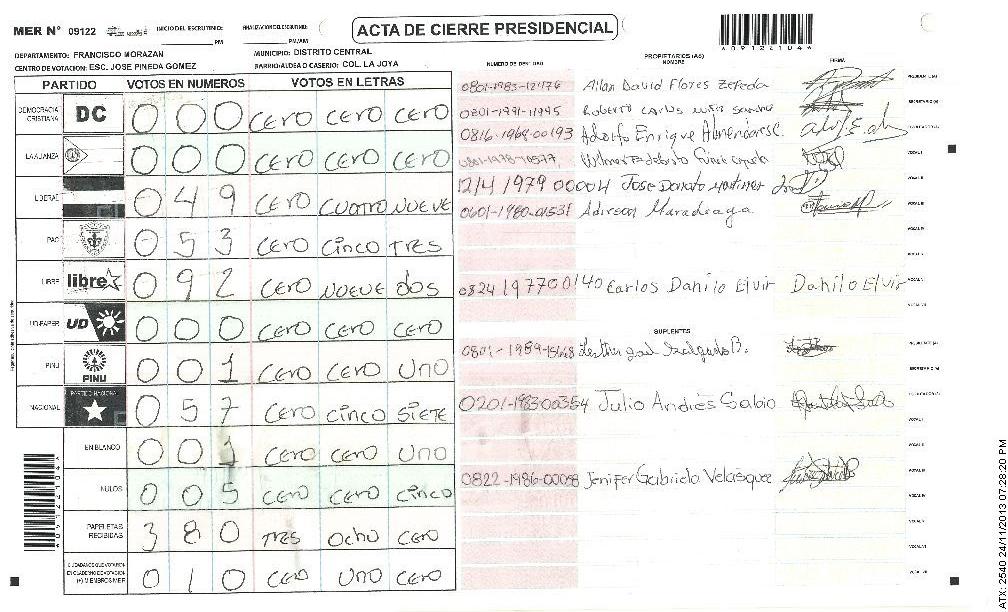 MER N° 09122 INICIO DEL ESCRUTINIO: PM FINALIZACION DEL ESCRUTINIO: PM/AM
ACTA DE CIERRE PRESIDENCIAL
DEPARTAMENTO: FRANCISCO MORAZAN MUNICIPIO: DISTRITO CENTRAL
CENTRO DE VOTACION: ESC. JOSE PINEDA GOMEZ BARRIO/ALDEA O CASERIO: COL. LA JOYA
PARTIDO VOTOS EN NUMEROS VOTOS EN LETRAS
DEMOCRACIA CRISTIANA DC 0 0 0 CERO CERO CERO
LA ALIANZA 0 0 0 CERO CERO CERO
LIBERAL 0 4 9 CERO CUATRO NUEVE
PAC 0 5 3 CERO CINCO TRES
LIBRE libre 0 9 2 CERO NUEVE DOS
UD-FAPER UD 0 0 0 CERO CERO CERO
PINU PINU 0 0 1 CERO CERO UNO
NACIONAL PARTIDO NACIONAL 0 5 7 CERO CINCO SIETE
EN BLANCO 0 0 1 CERO CERO UNO
NULOS 0 0 5 CERO CERO CINCO
PAPELETAS RECIBIDAS 3 8 0 TRES OCHO CERO
CIUDADANOS QUE VOTARON EN CUADERNO DE VOTACION (+) MIEMBROS MER 0 1 0 CERO UNO CERO
NUMERO DE IDENTIDAD PROPIETARIOS (AS) NOMBRE FIRMA
0801-1983-12176 Allan David Flores Zepeda
0801-1991-11995 Roberto Carlos
0816-1968-00193 Adolfo Enrique
0801-1978-10577 Wilmer
1214 1979 00004 Jose Donato Martinez
0601-1980-01531 Adirson Maradiaga
0824 1977 00140 Carlos Danilo Elvir Danilo Elvir
SUPLENTES
0801-1989-15468
0201-1983-00354 Julio Andrés Sabio
0822-1986-00058 Jenifer Gabriela Velasquez
ATX: 2540 24/11/2013 07:28:20 PM